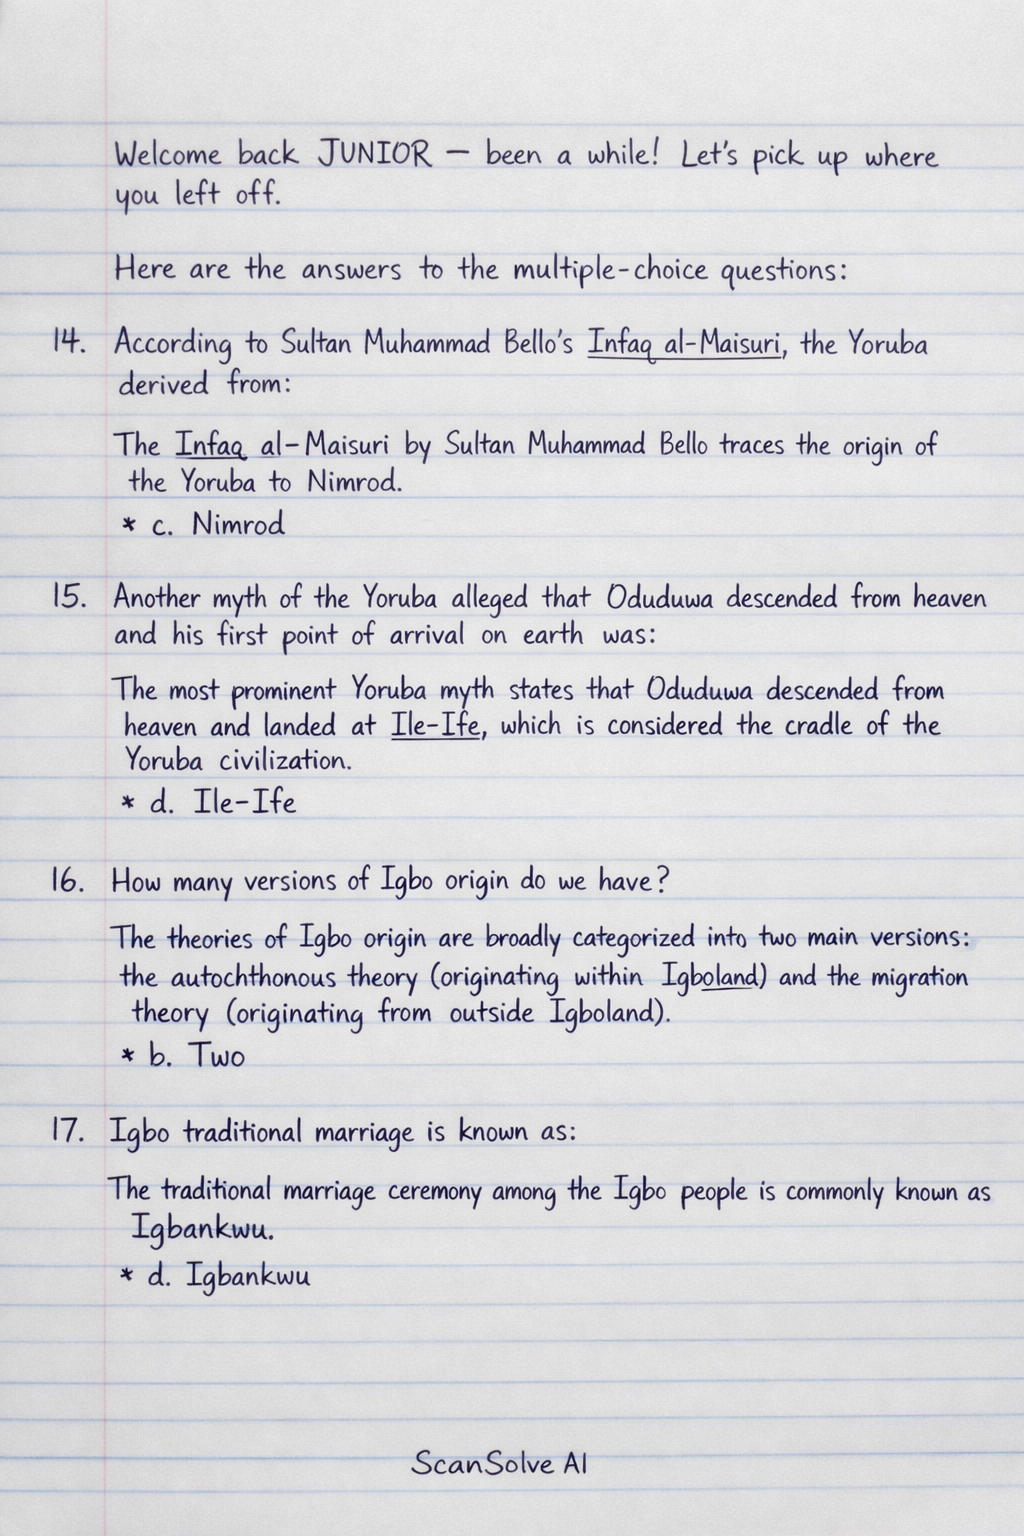 Welcome back JUNIOR – been a while! Let's pick up where
you left off.
Here are the answers to the multiple-choice questions:
14. According to Sultan Muhammad Bello's Infaq al-Maisuri, the Yoruba
derived from:
The Infaq al-Maisuri by Sultan Muhammad Bello traces the origin of
the Yoruba to Nimrod.
* c. Nimrod
15. Another myth of the Yoruba alleged that Oduduwa descended from heaven
and his first point of arrival on earth was:
The most prominent Yoruba myth states that Oduduwa descended from
heaven and landed at Ile-Ife, which is considered the cradle of the
Yoruba civilization.
* d. Ile-Ife
16. How many versions of Igbo origin do we have?
The theories of Igbo origin are broadly categorized into two main versions:
the autochthonous theory (originating within Igboland) and the migration
theory (originating from outside Igboland).
* b. Two
17. Igbo traditional marriage is known as:
The traditional marriage ceremony among the Igbo people is commonly known as
Igbankwu.
* d. Igbankwu
ScanSolve AI